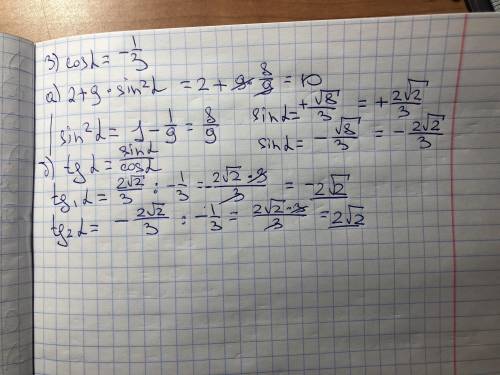 3) cosα = -1/3
а) 2+9·sin²α = 2+9·8/9 = 10
sin²α = 1 - 1/9 = 8/9 sinα = +√8/3 = +2√2/3
sinα = -√8/3 = -2√2/3
б) tgα = sinα/cosα
tg₁α = 2√2/3 : -1/3 = -2√2·3/3 = -2√2
tg₂α = -2√2/3 : -1/3 = 2√2·3/3 = 2√2